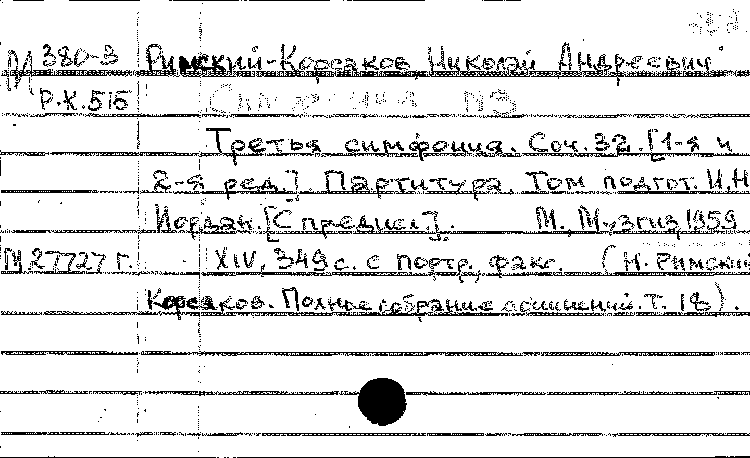 М 380-3 Римский-Корсаков, Николай Андреевич
Р.К.515
№3
Третья симфония. Соч. 32. [1-я и
2-я ред.]. Партитура. Том подгот. И.Н.
Иордан. [С предисл.]. М., Музгиз, 1959
М 27727 г. XIV, 349 с. с портр., факс. (Н. Римский
Корсаков. Полное собрание сочинений. Т. 18).